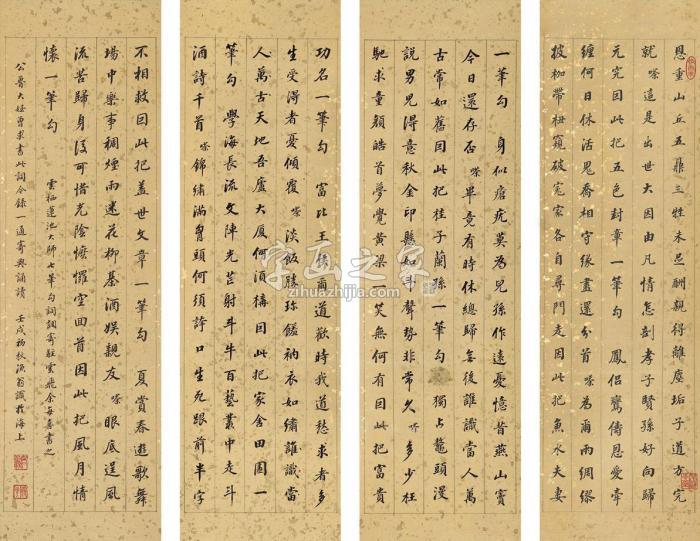 恩重山丘五鼎三牲未足酬親得離塵垢子道方完
就嗏這是出世大因由凡情怎剖孝子賢孫好向歸
元究因此把五色封章一筆勾 鳳侶鸞儔恩愛牽
纏何日休活鬼喬相守緣盡還分首嗏為爾兩綢繆
披枷帶杻窺破冤家各自尋門走因此把魚水夫妻
一筆勾 身似瘡疣莫為兒孫作遠憂憶昔燕山竇
今日還存否嗏畢竟有時休總歸無後誰識當人萬
古常如舊因此把桂子蘭孫一筆勾 獨占鰲頭漫
說男兒得意秋金印懸如斗聲勢非常久嗏多少枉
馳求童顏皓首夢覺黃粱一笑無何有因此把富貴
功名一筆勾 富比王侯爾道歡時我道愁求者多
生受得者憂傾覆嗏淡飯勝珍饈衲衣如繡誰識當
人萬古天地吾廬大廈何須構因此把家舍田園一
筆勾 學海長流文陣光芒射斗牛百藝叢中走斗
酒詩千首嗏錦繡滿胸頭何須誇口生死跟前半字
不相救因此把蓋世文章一筆勾 夏賞春遊歌舞
場中樂事稠煙雨迷花柳棊酒娛親友嗏眼底逞風
流苦歸身後可惜光陰懡㦬空回首因此把風月情
懷一筆勾 雲棲蓮池大師七筆勾詞調寄駐雲飛余每喜書之
公魯大姪曾求書此詞今錄一通寄興誦讀 壬戌初秋漁翁識於海上
字画之家
zihuazhijia.com